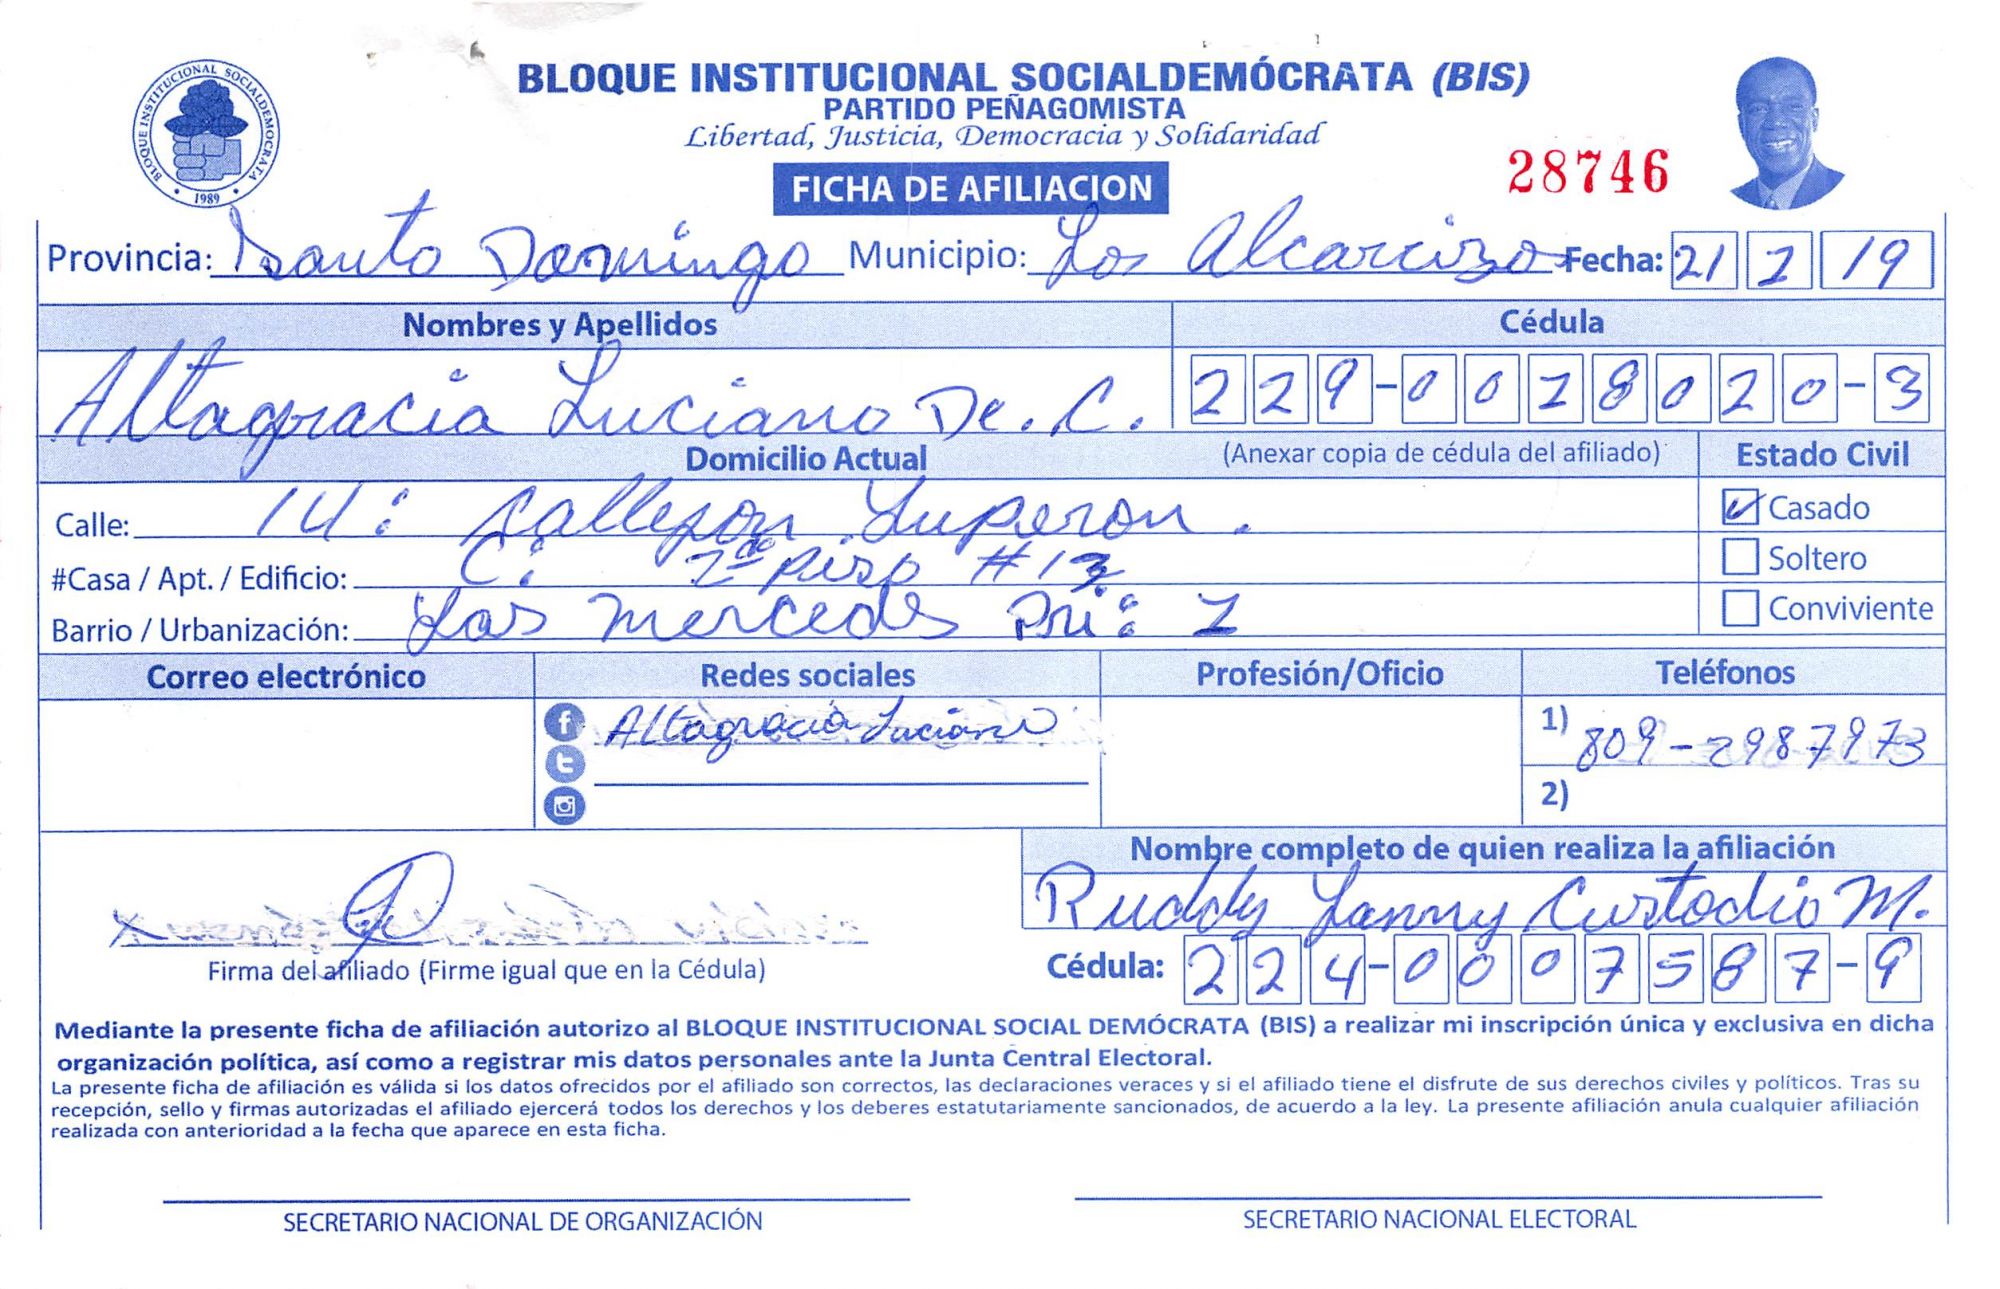 BLOQUE INSTITUCIONAL SOCIALDEMÓCRATA (BIS)
PARTIDO PEÑAGOMISTA
Libertad, Justicia, Democracia y Solidaridad
BLOQUE INSTITUCIONAL SOCIALDEMOCRATA
1989
28746
FICHA DE AFILIACION
Provincia: Santo Domingo Municipio: Los Alcarrizo Fecha: 21 2 19
Nombres y Apellidos Cédula
Altagracia Luciano De. C. 229-0018020-3
Domicilio Actual (Anexar copia de cédula del afiliado) Estado Civil
Calle: 14: Callejon Luperon. Casado
#Casa / Apt. / Edificio: C: 2do piso #13 Soltero
Barrio / Urbanización: Las mercedes Pri: 1 Conviviente
Correo electrónico Redes sociales Profesión/Oficio Teléfonos
Altagracia Luciano 1) 809-2987973
2)
Nombre completo de quien realiza la afiliación
Ruddy Lanny Custodio M.
Firma del afiliado (Firme igual que en la Cédula) Cédula: 224-0007587-9
Mediante la presente ficha de afiliación autorizo al BLOQUE INSTITUCIONAL SOCIAL DEMÓCRATA (BIS) a realizar mi inscripción única y exclusiva en dicha
organización política, así como a registrar mis datos personales ante la Junta Central Electoral.
La presente ficha de afiliación es válida si los datos ofrecidos por el afiliado son correctos, las declaraciones veraces y si el afiliado tiene el disfrute de sus derechos civiles y políticos. Tras su
recepción, sello y firmas autorizadas el afiliado ejercerá todos los derechos y los deberes estatutariamente sancionados, de acuerdo a la ley. La presente afiliación anula cualquier afiliación
realizada con anterioridad a la fecha que aparece en esta ficha.
SECRETARIO NACIONAL DE ORGANIZACIÓN SECRETARIO NACIONAL ELECTORAL